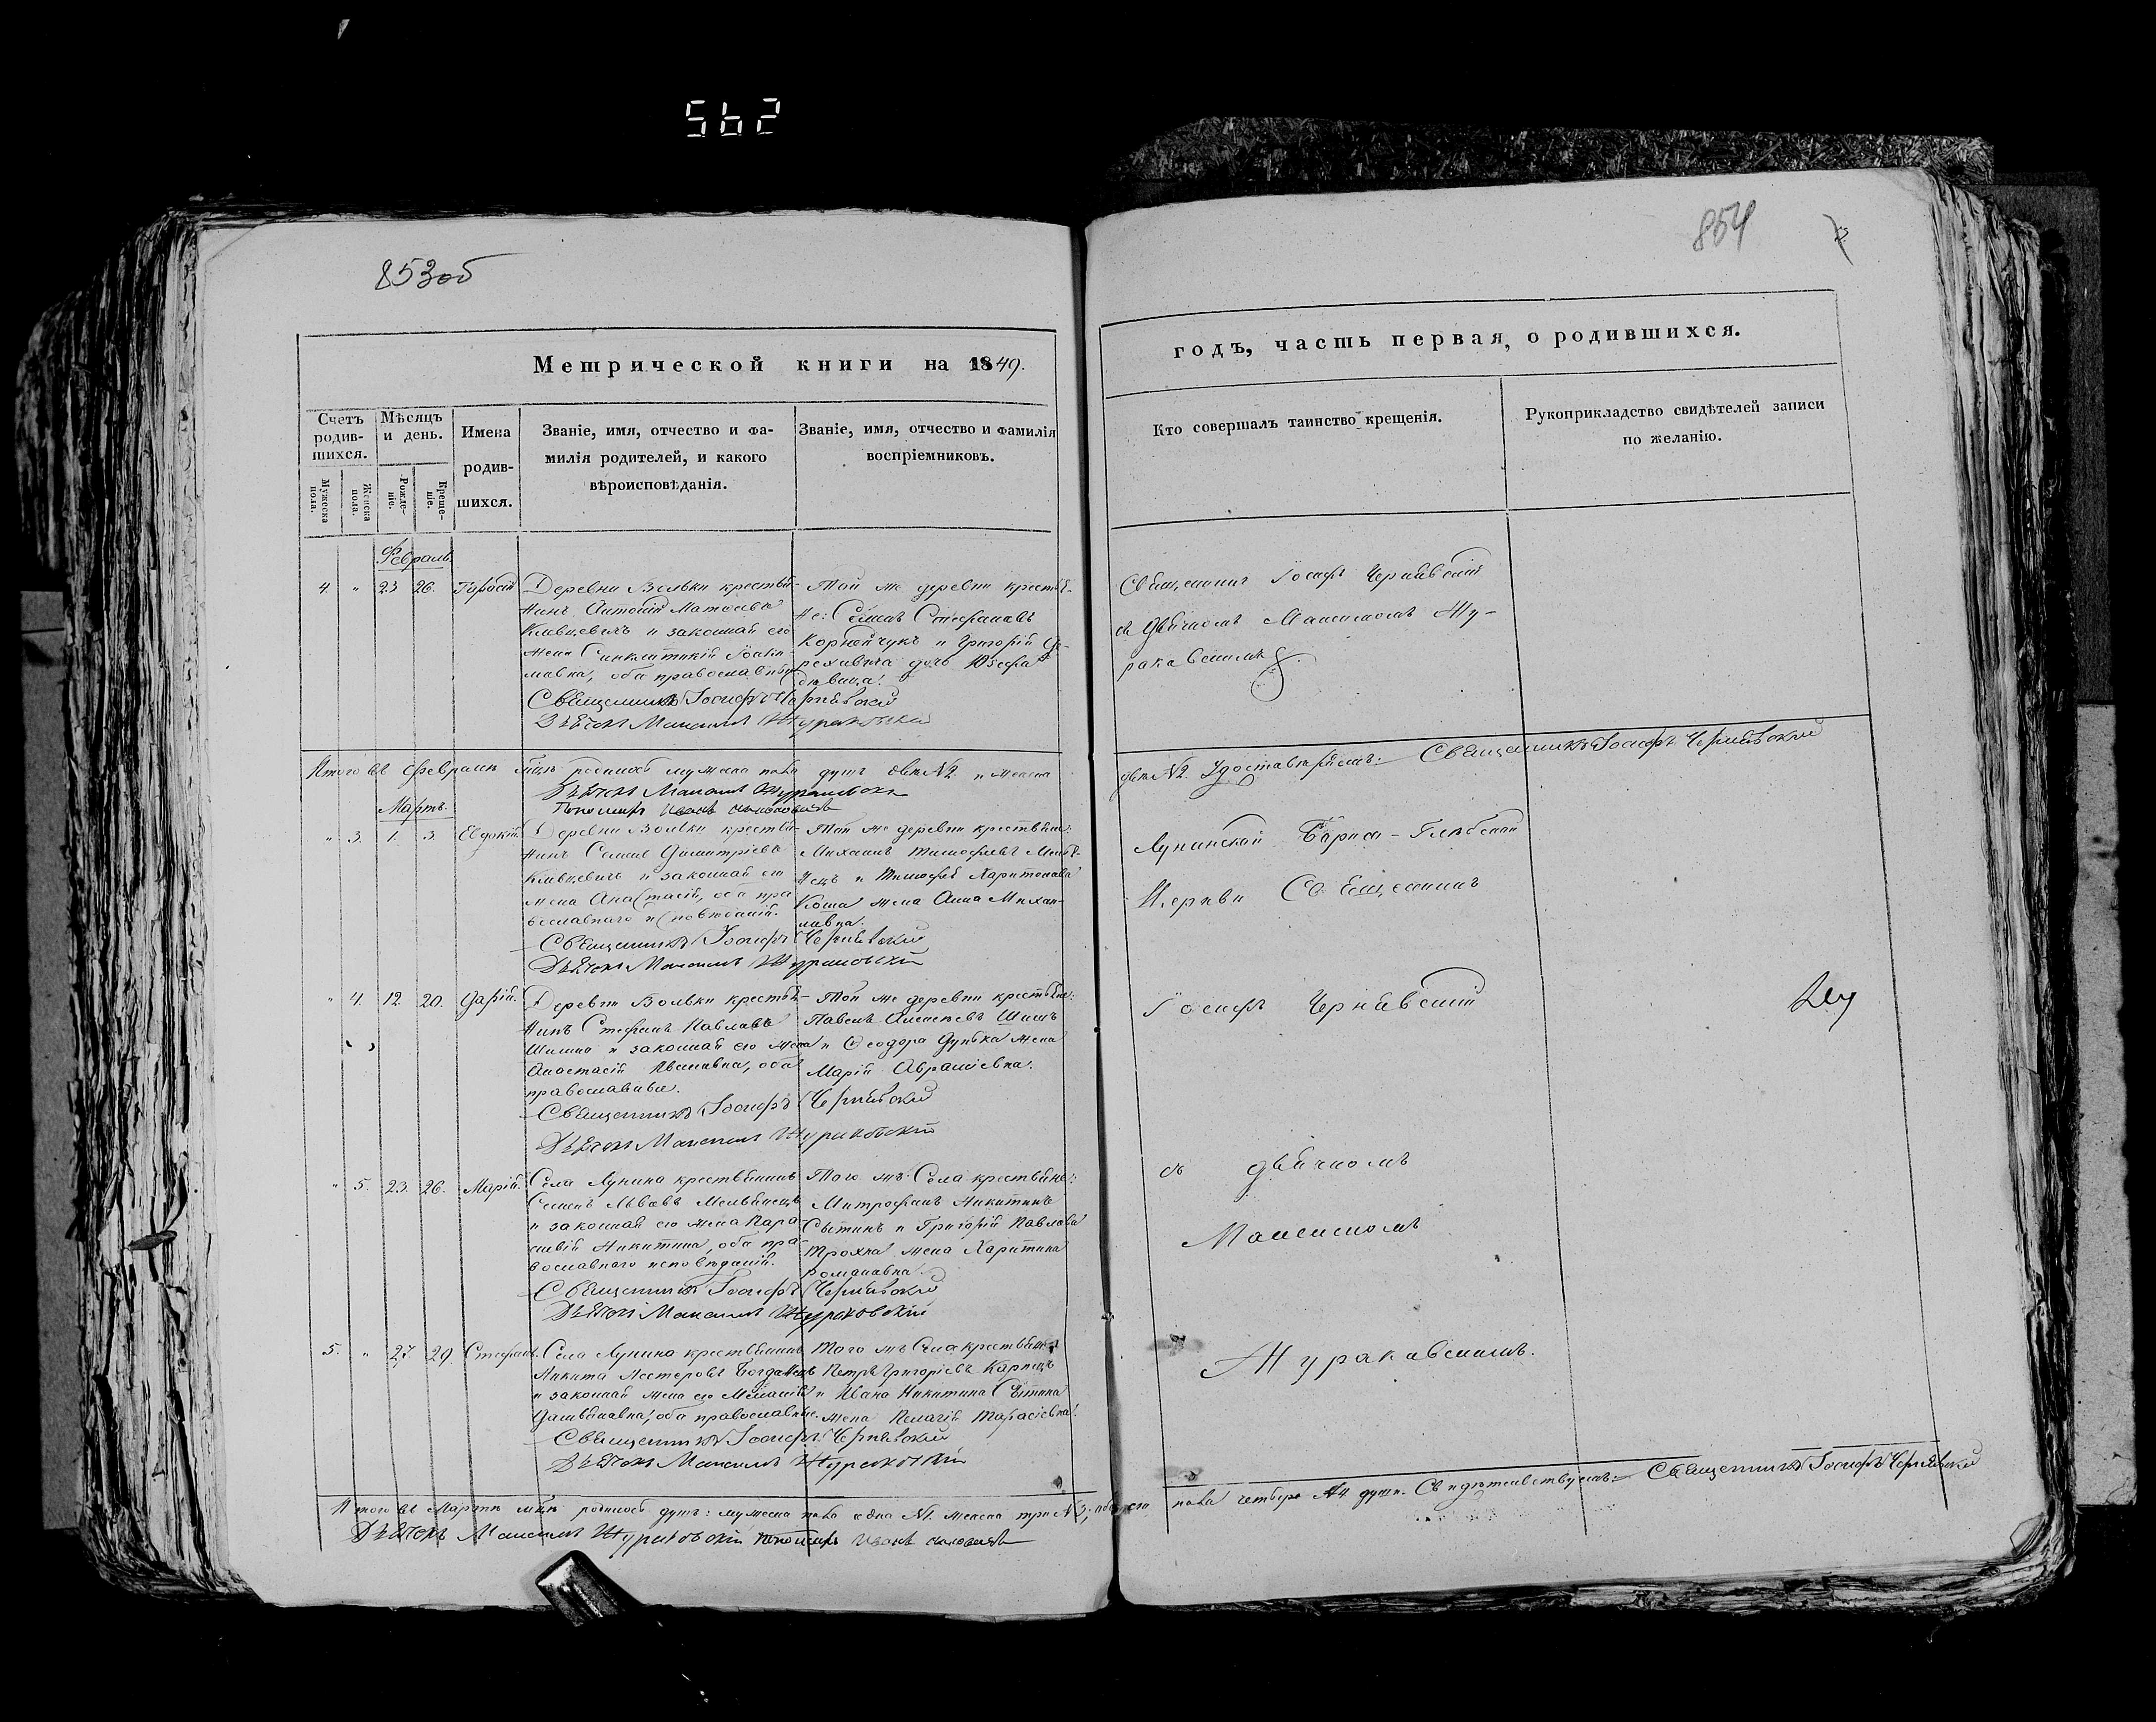 562
853об
Метрической книги на 1849.
Счетъ родившихся.
Мѣсяцъ и день.
Имена родившихся.
Званіе, имя, отчество и фамилія родителей, и какого вѣроисповѣданія.
Званіе, имя, отчество и фамилія воспріемниковъ.
Мужеска пола.
Женска пола.
Рожденіе.
Крещеніе.
Февраль
4. " 23 26.
Деревни Вольки крестья-
нинъ Антоній Матѳеевъ
и законная его
жена
оба православные
Священникъ Іосифъ Чернявскій
Дьячокъ Максимъ Жураковскій
Той же деревни крестья-
не: Семенъ Стефановъ
Корнойчукъ и Григорій
дочь Юзефа
дѣвица.
Итого въ Февралѣ м-цѣ родилось мужеска пола душъ двѣ №2 и женска
Дьячокъ Максимъ Жураковскій
Пономарь Иванъ
Мартъ.
" 3. 1. 3 Евдокія.
Деревни Вольки крестья-
нинъ Семенъ Димитріевъ
и законная его
жена Анастасія, оба пра-
вославнаго исповѣданія.
Священникъ Іосифъ Чернявскій
Дьячокъ Максимъ Жураковскій
Той же деревни крестьяне:
Михаилъ Тимофеевъ
и Тимофея Харитонова
Коша жена Анна Михаи-
ловна.
" 4. 12. 20. Дарія.
Деревни Вольки крестья-
нинъ Стефанъ Павловъ
и законная его жена
Анастасія Ивановна, оба
православные.
Священникъ Іосифъ Чернявскій
Дьячокъ Максимъ Жураковскій
Той же деревни крестьяне:
Павелъ Алексѣевъ
и Ѳеодора Дунька жена
Марія Авраміевна.
" 5. 23. 26. Марія.
Села Лунина крестьянинъ
Семенъ Львовъ Мельянецъ
и законная его жена Пара-
скевія Никитина, оба пра-
вославнаго исповѣданія.
Священникъ Іосифъ Чернявскій
Дьячокъ Максимъ Жураковскій
Того жъ Села крестьяне:
Митрофанъ Никитинъ
Сытинъ и Григорія Павлова
Трохна жена Харитина
Романовна.
5. " 27 29. Стефанъ.
Села Лунина крестьянинъ
Никита Нестеровъ Богданецъ
и законная жена его Меланія
оба православные.
Священникъ Іосифъ Чернявскій
Дьячокъ Максимъ Жураковскій
Того жъ Села крестьяне
Петръ Григоріевъ Карпецъ
и Ивана Никитина Сытина
жена Пелагія Тарасіевна.
Итого въ Мартѣ м-цѣ родилось душъ: мужеска пола одна №1. женска три №3;
Дьячокъ Максимъ Жураковскій Пономарь Иванъ
854
годъ, часть первая, о родившихся.
Кто совершалъ таинство крещенія.
Рукоприкладство свидѣтелей записи по желанію.
Священникъ Іосифъ Чернявскій
съ Дьячкомъ Максимомъ Жу-
раковскимъ.
двѣ №2. Удостовѣряемъ: Священникъ Іосифъ Чернявскій
Лунинской Бориса-Глѣбской
Церкви Священникъ
Іосифъ Чернявскій
съ дьячкомъ
Максимомъ
Жураковскимъ.
пола четыре №4 души. Свидѣтельствуемъ: Священникъ Іосифъ Чернявскій